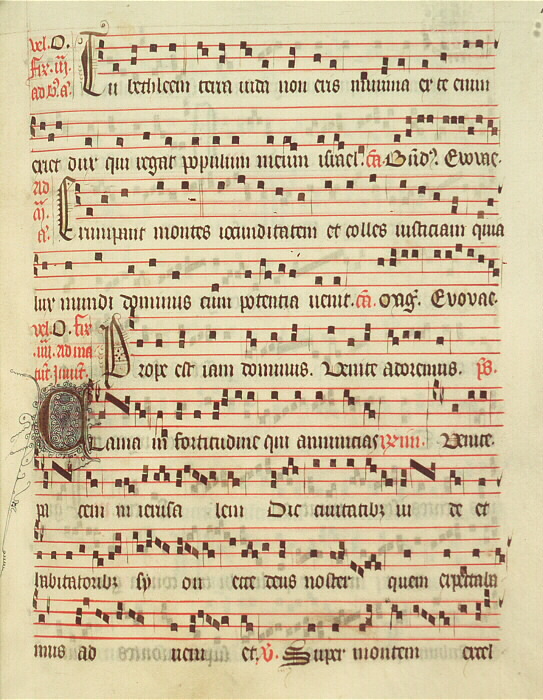 vel. O.
Fer. iij.
Tu bethleem terra iuda non eris minima ex te enim
exiet dux qui regat populum meum israel. Evovae.
ad
Erumpant montes iocunditatem et colles iusticiam quia
lux mundi dominus cum potentia venit. Evovae.
vel. O. fer
iiij. ad ma
tut. Invit.
Prope est iam dominus. Venite adoremus. ps.
Clama in fortitudine qui annuncias Venite.
pa cem in ierusa lem Dic civitatibz iu de et
habitatoribz sy on ecce deus noster quem expectaba
mus ad veni et. V. Super montem excel